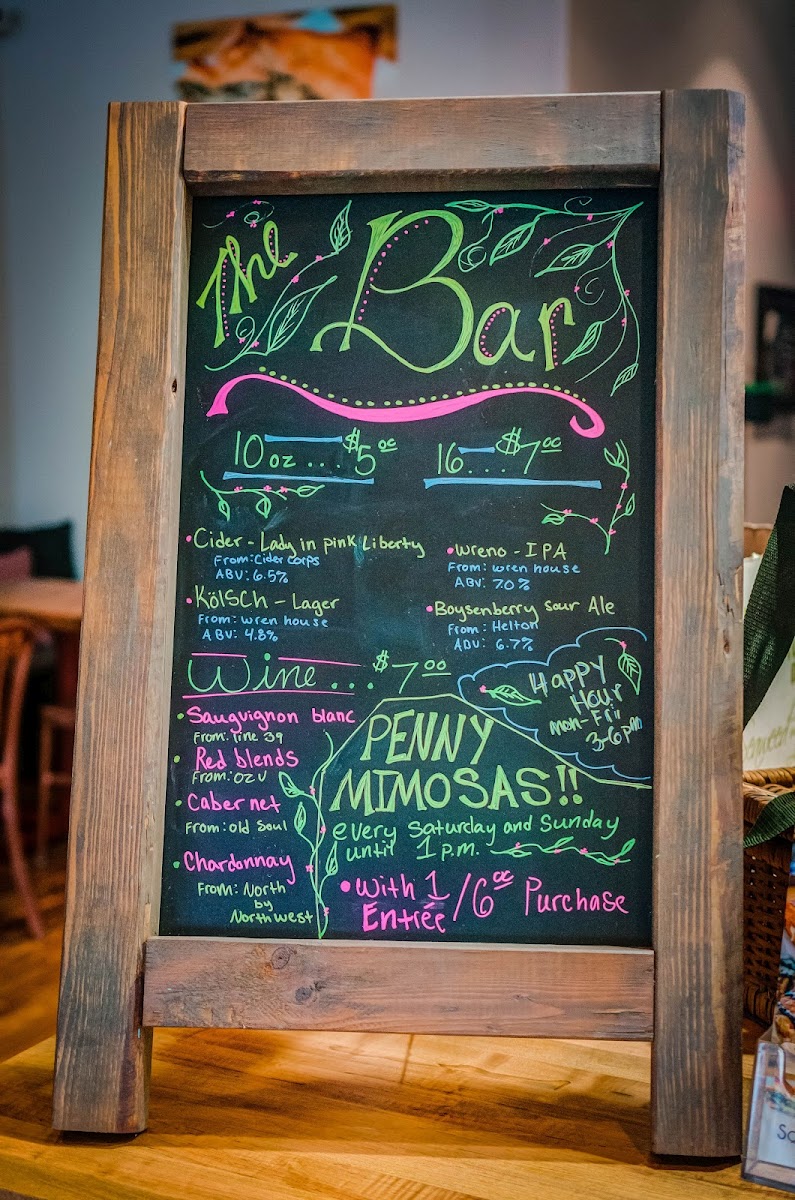 The Bar
10 oz .... $5 00
16 .... $7 00
Cider - Lady in pink Liberty
From: Cider Corps
ABV: 6.5%
Kölsch - Lager
From: wren house
ABV: 4.8%
Wreno - IPA
From: wren house
ABV: 7.0%
Boysenberry Sour Ale
From: Helton
ABV: 6.7%
Wine ... $7 00
Sauguignon blanc
From: line 39
Red blends
From: OZV
Cabernet
From: old Soul
Chardonnay
From: North
by
Northwest
Happy
Hour
Mon-Fri
3-6pm
PENNY
MIMOSAS!!
every Saturday and Sunday
until 1 p.m.
With 1
Entrée /6 00 Purchase